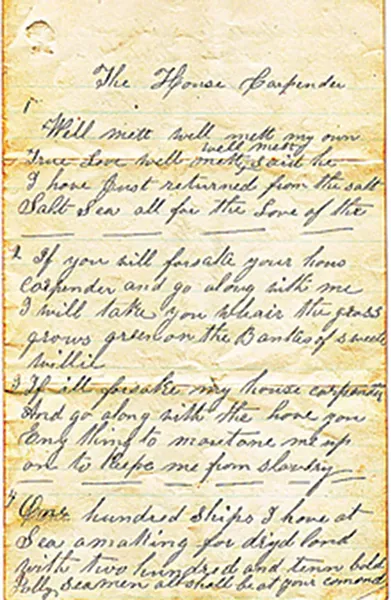 The House Carpender
1
Will mett will mett my own
well mett
True Love well mett, said he
I have Just returned from the salt
Salt Sea all for the Love of the
2 If you will forsake your hous
carpender and go along with me
I will take you whair the grass
grows green on the Bankes of sweete
Willie
3 If ill forsake my house carpenter
And go along with the have you
Eny thing to maintane me up
on to keepe me from slavery
4 One hundred Ships I have at
Sea a making for dryd land
with two hundred and tenn bold
Jolly Seamen all shall be at your comand